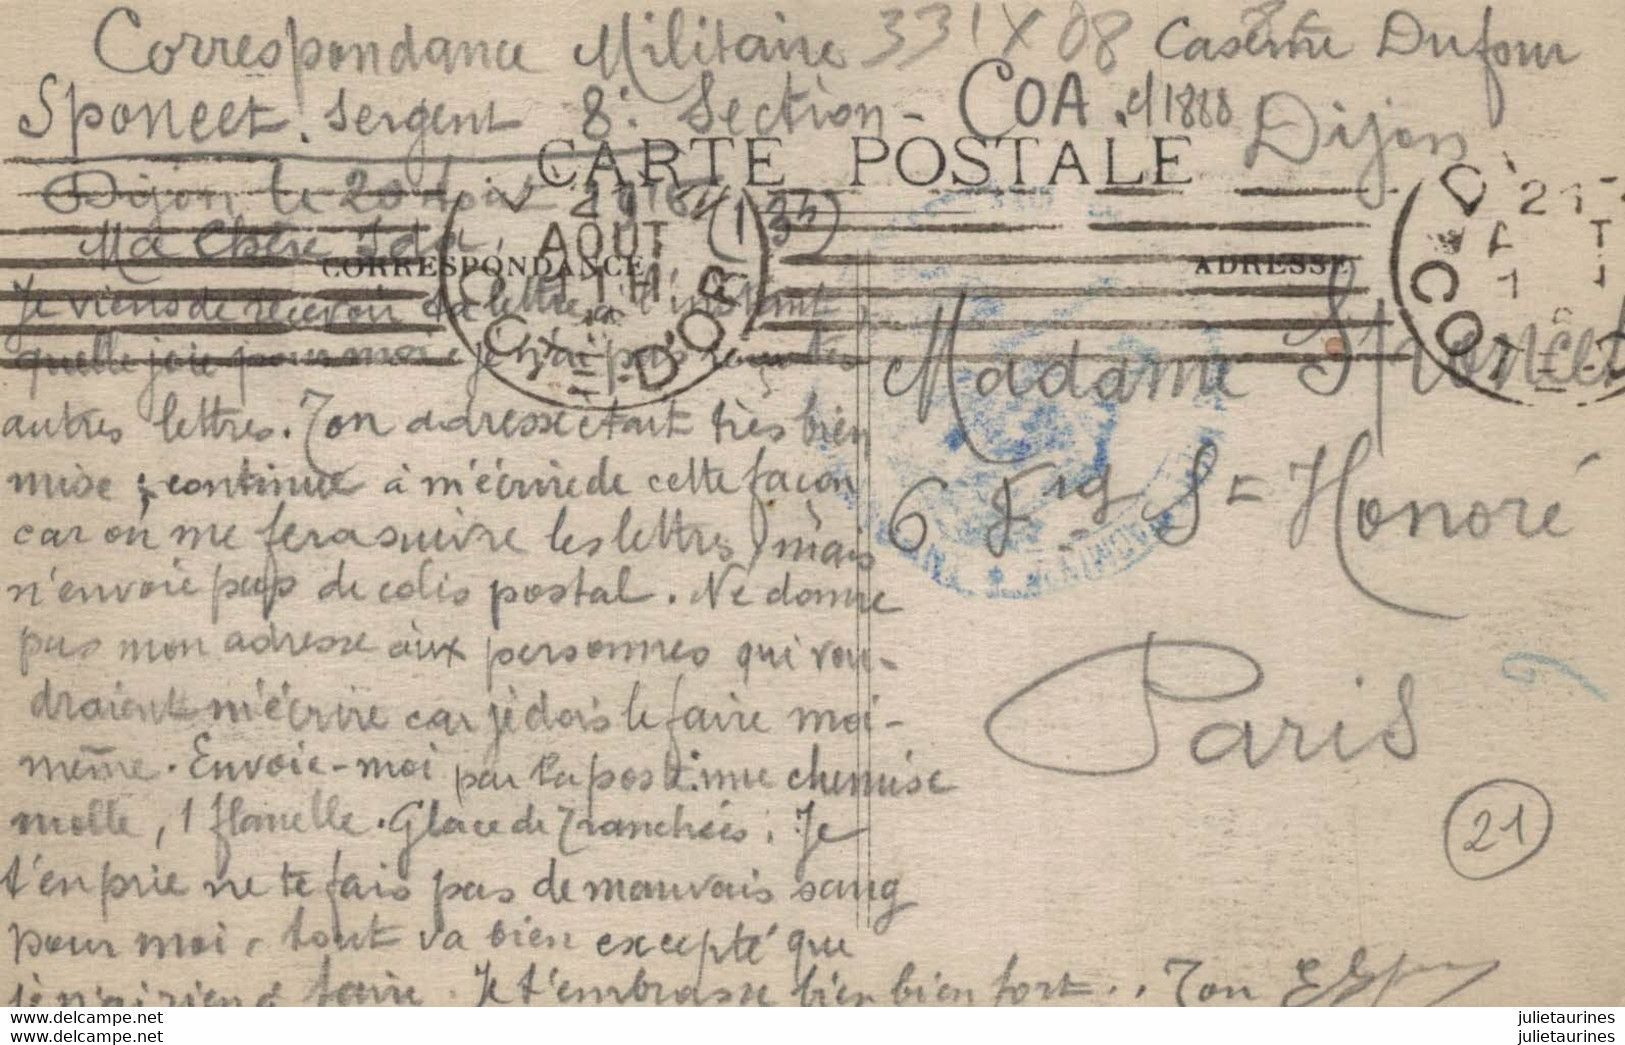 Correspondance Militaire 331X08 Caserne Dufour
Sponcet. Sergent 8e Section - COA. Dijon
CARTE POSTALE
Dijon le 20 Août 1916
Ma Chère Ida,
CORRESPONDANCE
Je viens de recevoir ta lettre à l'instant,
quelle joie pour moi, je n'ai pas reçu tes
autres lettres. Ton adresse était très bien
mise ; continue à m'écrire de cette façon
car on me fera suivre les lettres, mais
n'envoie pas de colis postal. Ne donne
pas mon adresse aux personnes qui vou-
draient m'écrire car je dois le faire moi-
même. Envoie-moi par la poste. une chemise
molle, 1 flanelle. Glace de Tranchées. Je
t'en prie ne te fais pas de mauvais sang
pour moi, tout va bien excepté que
je n'ai rien à faire. Je t'embrasse bien bien fort.. Ton
ADRESSE
Madame Sponcet
6 Fg St Honoré
Paris
21
AOUT
COTE-D'OR
www.delcampe.net
www.delcampe.net
julietaurines
julietaurines